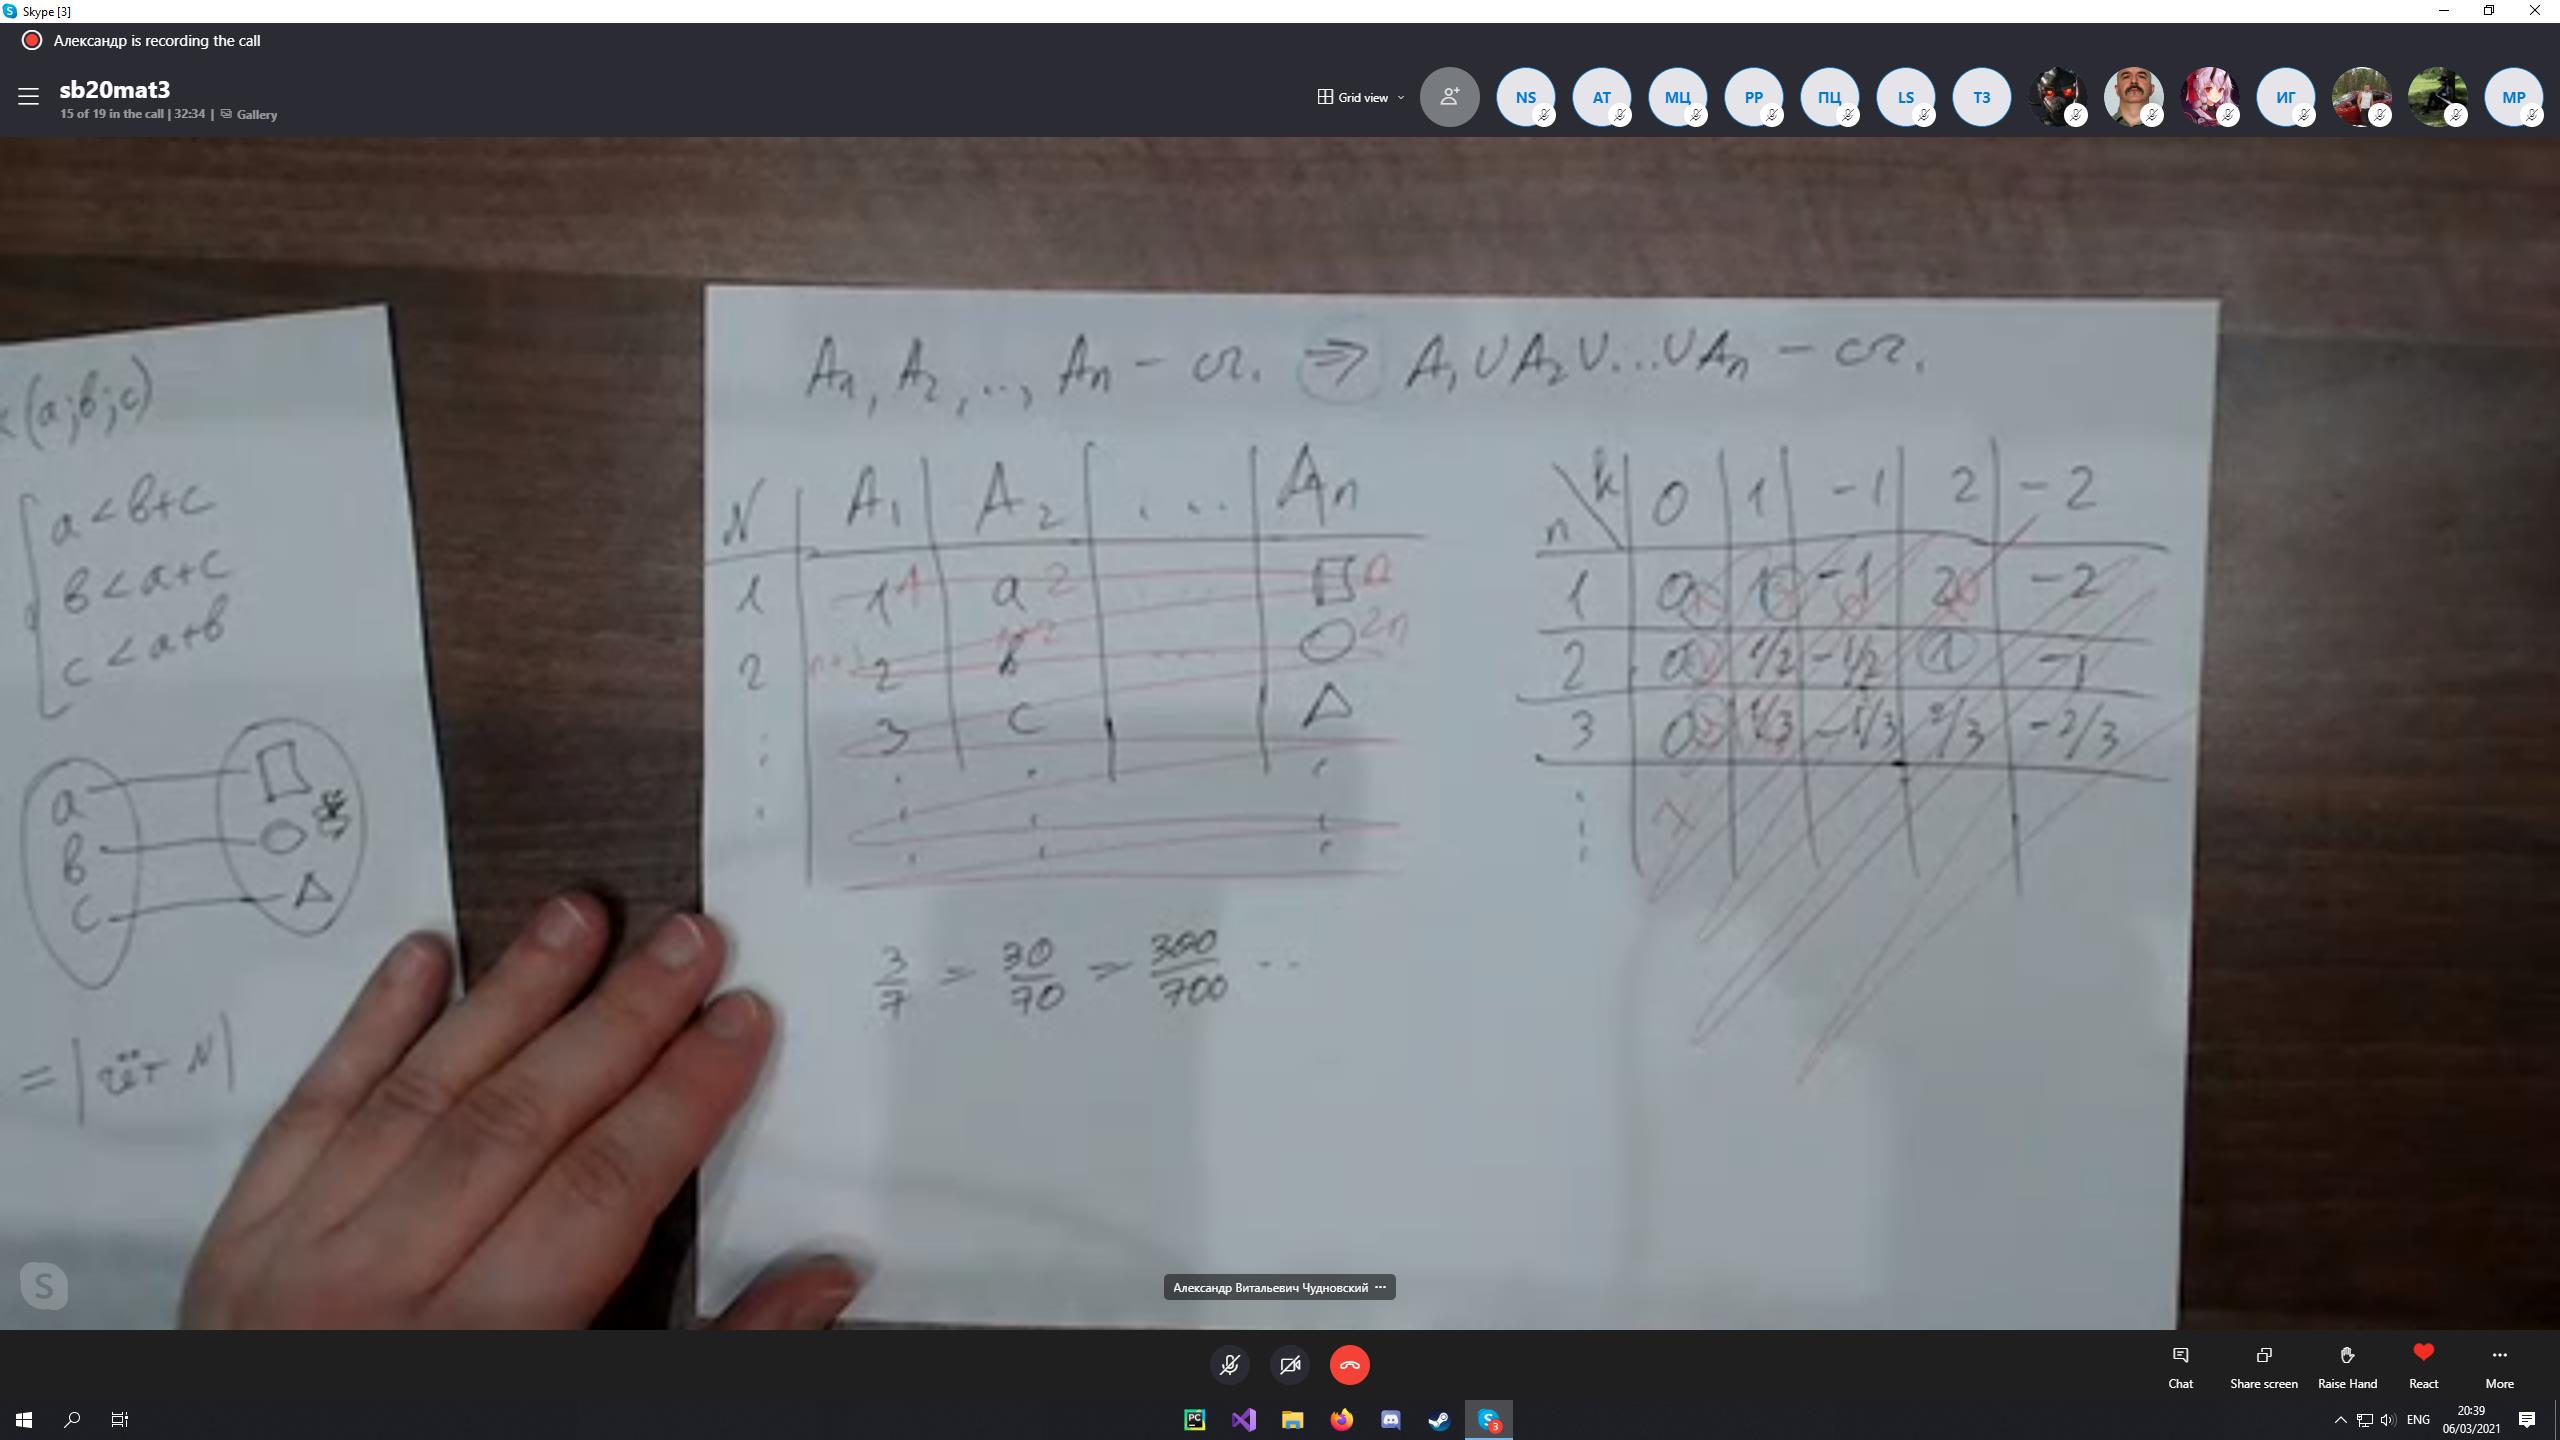 Skype [3]
Александр is recording the call
sb20mat3
15 of 19 in the call | 32:34 | Gallery
Grid view
NS AT МЦ PP ПЦ LS ТЗ ИГ MP
(a;b;c)
a < b+c
b < a+c
c < a+b
a
b
c
= | чёт N |
A₁, A₂, ..., Aₙ – сч. ⇒ A₁ ∪ A₂ ∪ ... ∪ Aₙ – сч.
N A₁ A₂ ... Aₙ
1 -1 1 a 2 ... □ n
2 n+1 2 b n+2 ... ○ 2n
3 c △
3/7 = 30/70 = 300/700 ..
n \ k 0 1 -1 2 -2
1 0 1 -1 2 -2
2 0 1/2 -1/2 1 -1
3 0 1/3 -1/3 2/3 -2/3
Александр Витальевич Чудновский ...
Chat Share screen Raise Hand React More
PC S 3 ENG 20:39
06/03/2021